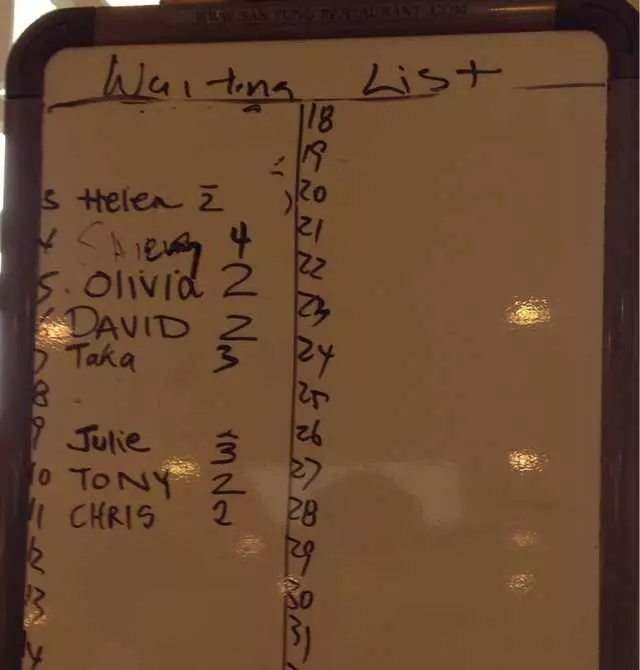 WWW.SAN TUNG RESTAURANT.COM
Waiting List
3 Helen 2
4 4
5. Olivia 2
6 DAVID 2
7 Taka 3
8
9 Julie 3
10 TONY 2
11 CHRIS 2
12
13
14
18
19
20
21
22
23
24
25
26
27
28
29
30
31